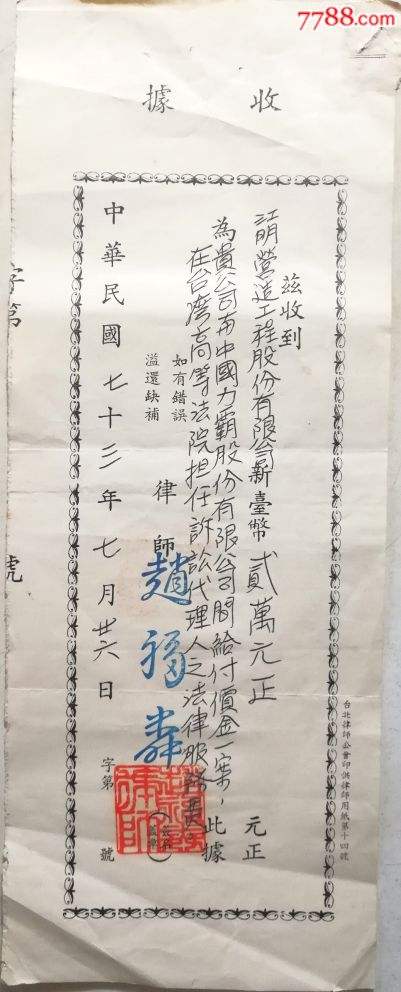 7788.com
收據
茲收到
江明營造工程股份有限公司新臺幣貳萬元正
元正
為貴公司與中國力霸股份有限公司間給付價金一案，
在台灣高等法院担任訴訟代理人之法律服務費
此據
如有錯誤
溢還缺補
律師 趙福舜
中華民國七十三年七月廿六日
字第 號
字第
號
台北律師公會印供律師用紙第十四號